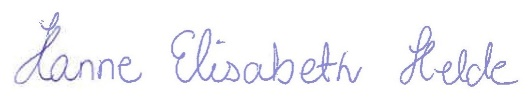 Hanne Elisabeth Helde